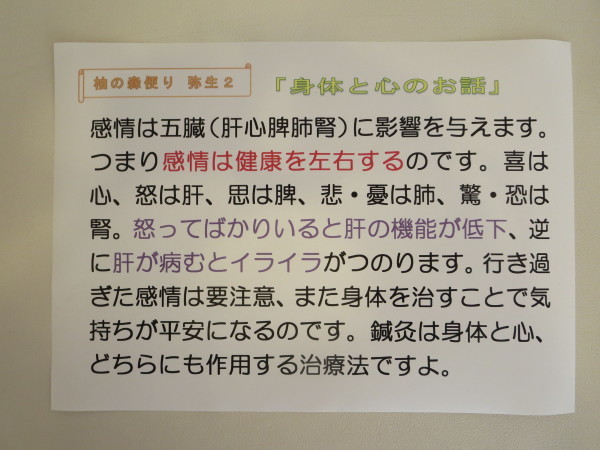 柚の森便り 弥生２
「身体と心のお話」
感情は五臓（肝心脾肺腎）に影響を与えます。
つまり感情は健康を左右するのです。喜は
心、怒は肝、思は脾、悲・憂は肺、驚・恐は
腎。怒ってばかりいると肝の機能が低下、逆
に肝が病むとイライラがつのります。行き過
ぎた感情は要注意、また身体を治すことで気
持ちが平安になるのです。鍼灸は身体と心、
どちらにも作用する治療法ですよ。